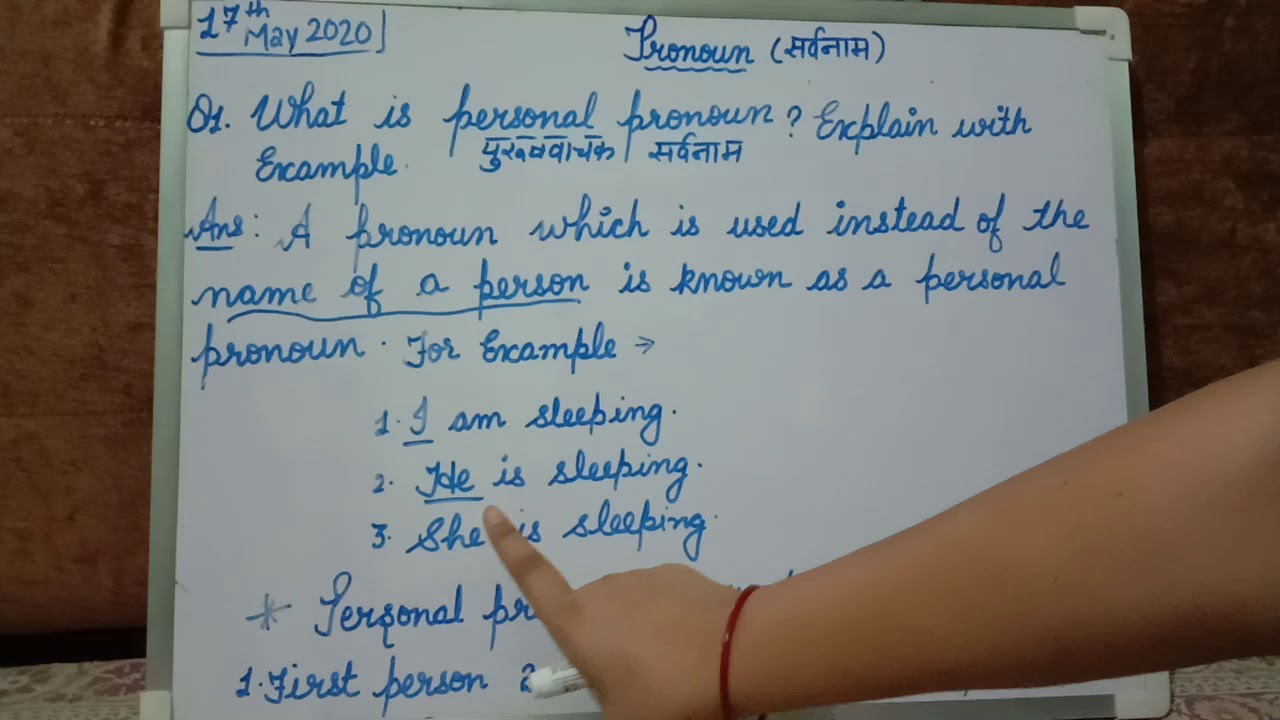 17th May 2020
Pronoun (सर्वनाम)
Q1. What is personal pronoun? Explain with
पुरुषवाचक सर्वनाम
Example.
Ans: A pronoun which is used instead of the
name of a person is known as a personal
pronoun. For Example →
1. I am sleeping.
2. He is sleeping.
3. She is sleeping.
* Personal
1. First person 2